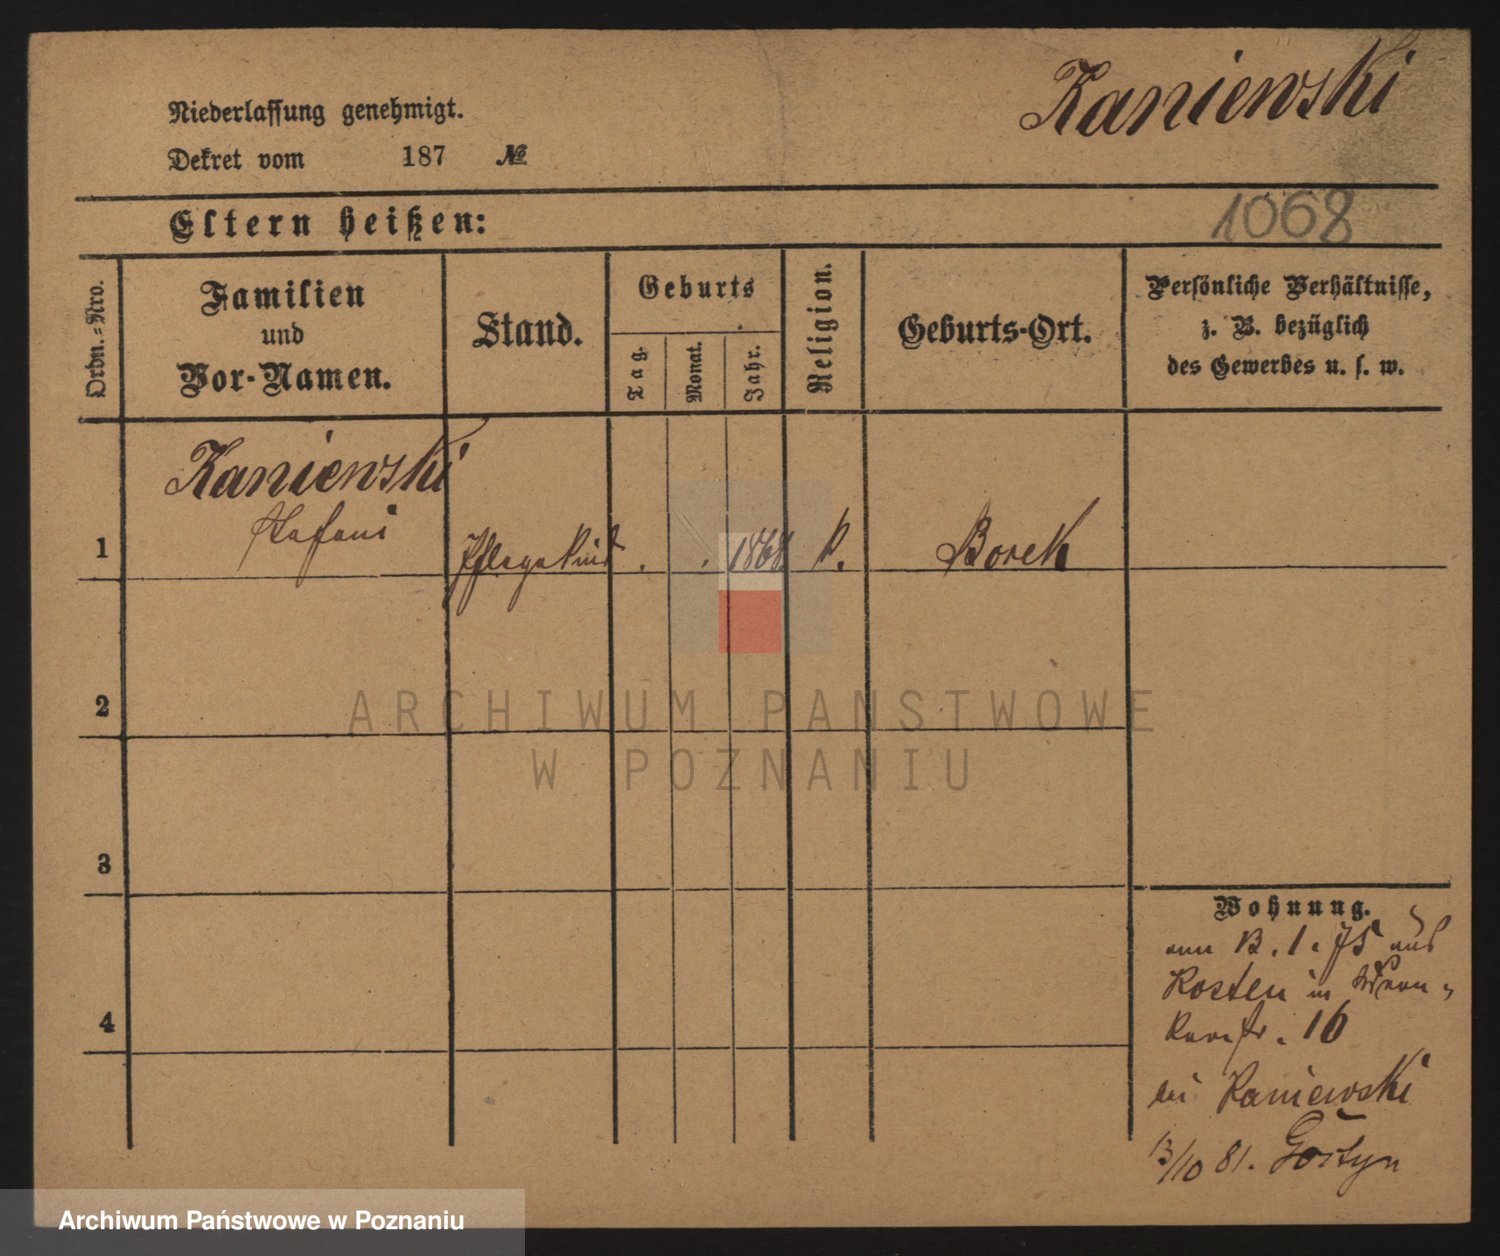 Kaniewski
Niederlassung genehmigt.
Dekret vom 187 №
1068
Eltern heißen:
Ordn.=Nro.
Familien
und
Vor-Namen.
Stand.
Geburts
Tag.
Monat.
Jahr.
Religion.
Geburts-Ort.
Persönliche Verhältnisse,
z. B. bezüglich
des Gewerbes u. s. w.
Kaniewski
Stefani
1 Pflegekind . . 1868 k. Borek
2
3
4
Wohnung.
am 13.1.75 aus
Kosten in
16
bei Kaniewski
13/10 81. Gostyn
ARCHIWUM PAŃSTWOWE
W POZNANIU
Archiwum Państwowe w Poznaniu